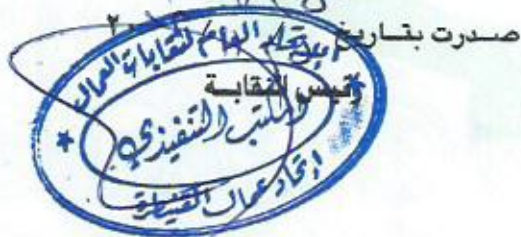 صدرت بتاريخ ٢٠
رئيس النقابة
الاتحاد العام لنقابات العمال
المكتب التنفيذي
اتحاد عمال القنيطرة